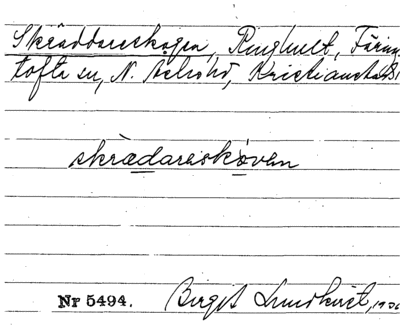 Skräddareskogen, Ringhult, Färin-
tofta sn, N. Åsbohd, Kristianstads l
skràdareskoven
Nr 5494. Birgit Lundkvist,